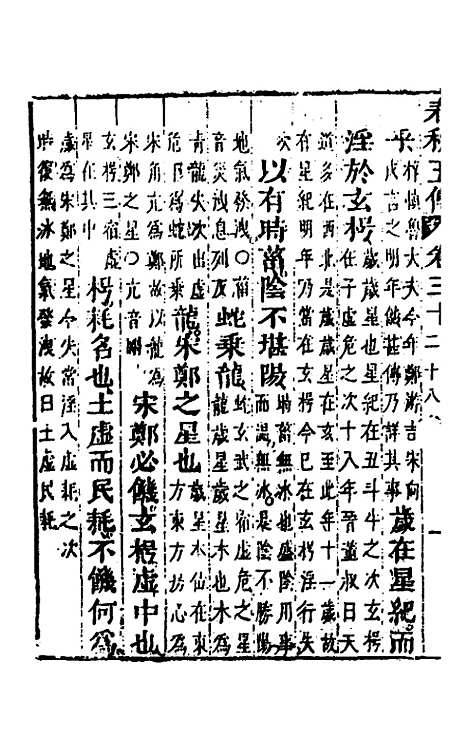 春秋五傳 卷三十二十八
乎梓慎魯大夫今年鄭游吉宋向
戌言之明年饑甚傳乃詳其事歲在星紀而
淫於玄枵歲歲星也星紀在丑斗牛之次玄枵
在子虛危之次十八年晉董叔曰天
道多在西北是歲歲星在亥至此年十一歲故
在星紀明年乃當在玄枵今已在玄枵淫行失
次以有時菑陰不堪陽時菑無冰也盛陰用事
而溫無冰是陰不勝陽
地氣發洩○菑
音災洩息列反蛇乘龍蛇玄武之宿虛危之星
龍歲星歲星木也木為
青龍失次出虛
危下為蛇所乘龍宋鄭之星也歲星本位在東
方東方房心為
宋角亢為鄭故以龍為
宋鄭之星○亢音剛宋鄭必饑玄枵虛中也
玄枵三宿虛
星在其中枵耗名也土虛而民耗不饑何為
歲為宋鄭之星今失常淫入虛耗之次
時復無冰地氣發洩故曰土虛民耗